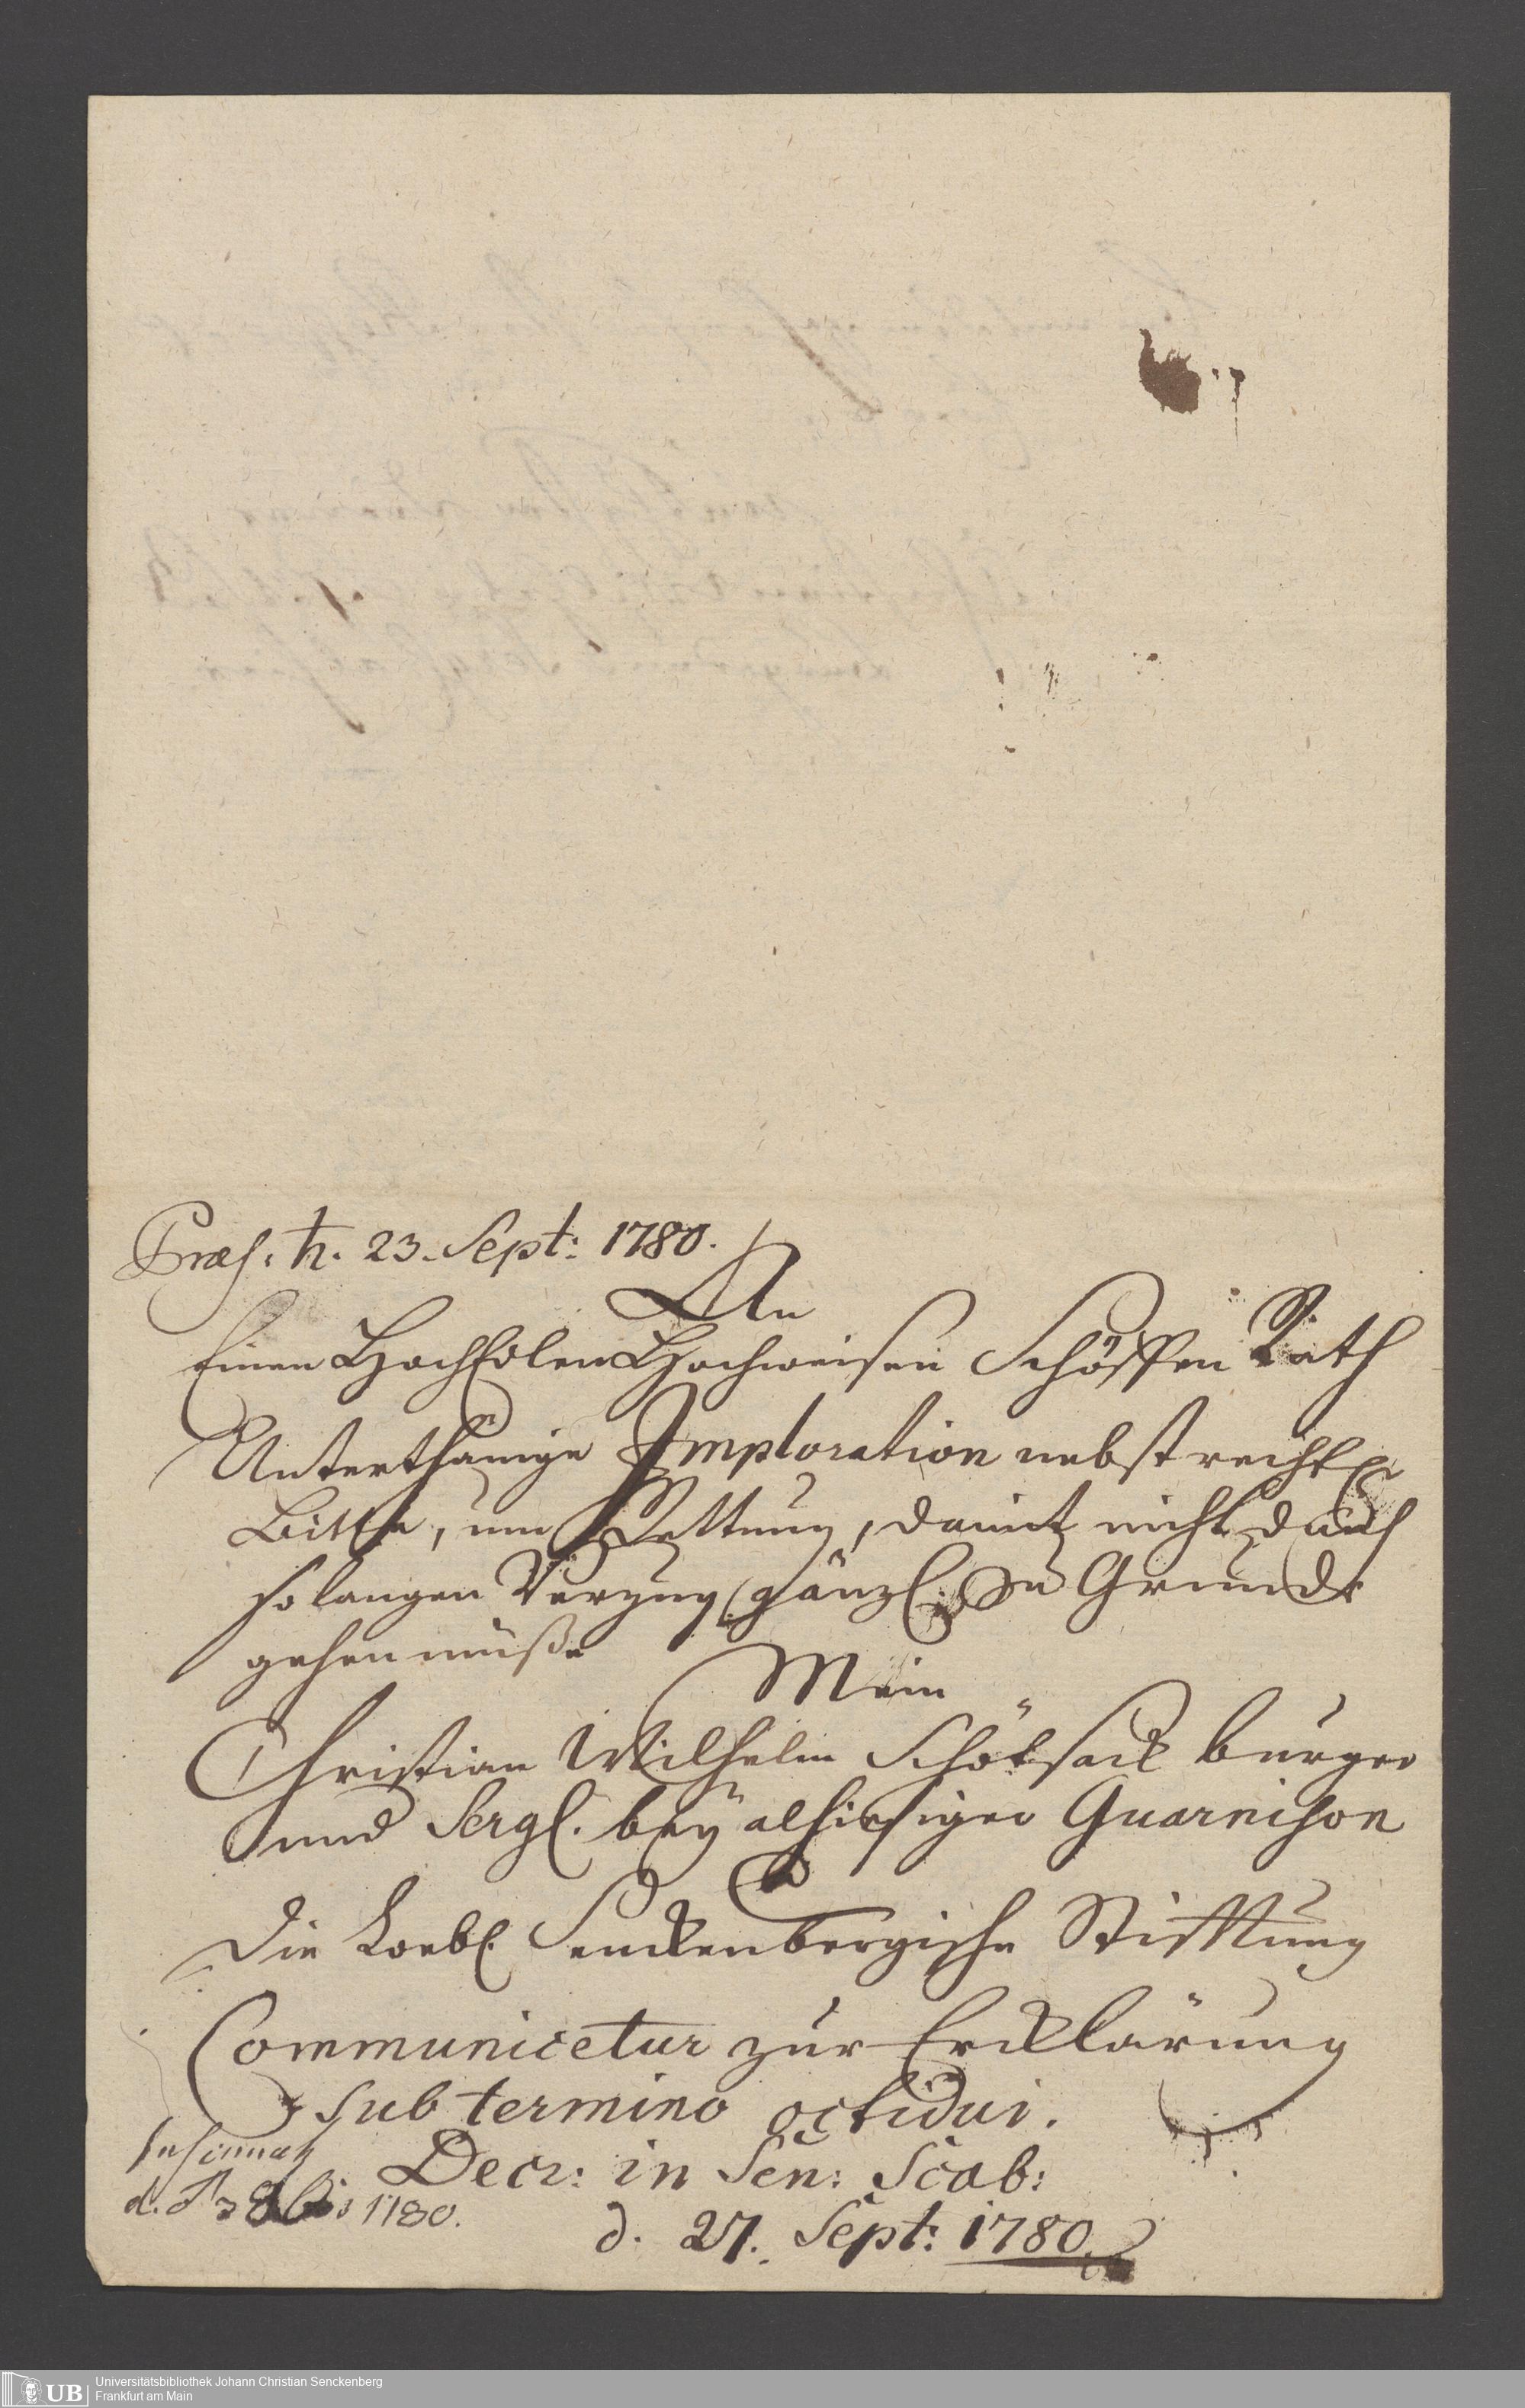 Præs. h. 23. Sept: 1780.
An
Einen HochEdlen Hochweisen Schöffen Rath
Unterthänige Imploration nebst rechtl.
Bitte, um Rettung, damit nicht durch
so langen Verzug gänzl. zu Grunde
gehen müße
Mein
Christian Wilhelm Schötsack burger
und Serg. bey alhiesiger Guarnison
Die Loebl. Senckenbergische Stifftung
Communicetur zur Ercklärung
sub termino octidui.
Insinuat
Decr: in Sen: Scab:
1780.
d. 27. Sept: 1780.
UB Universitätsbibliothek Johann Christian Senckenberg
Frankfurt am Main